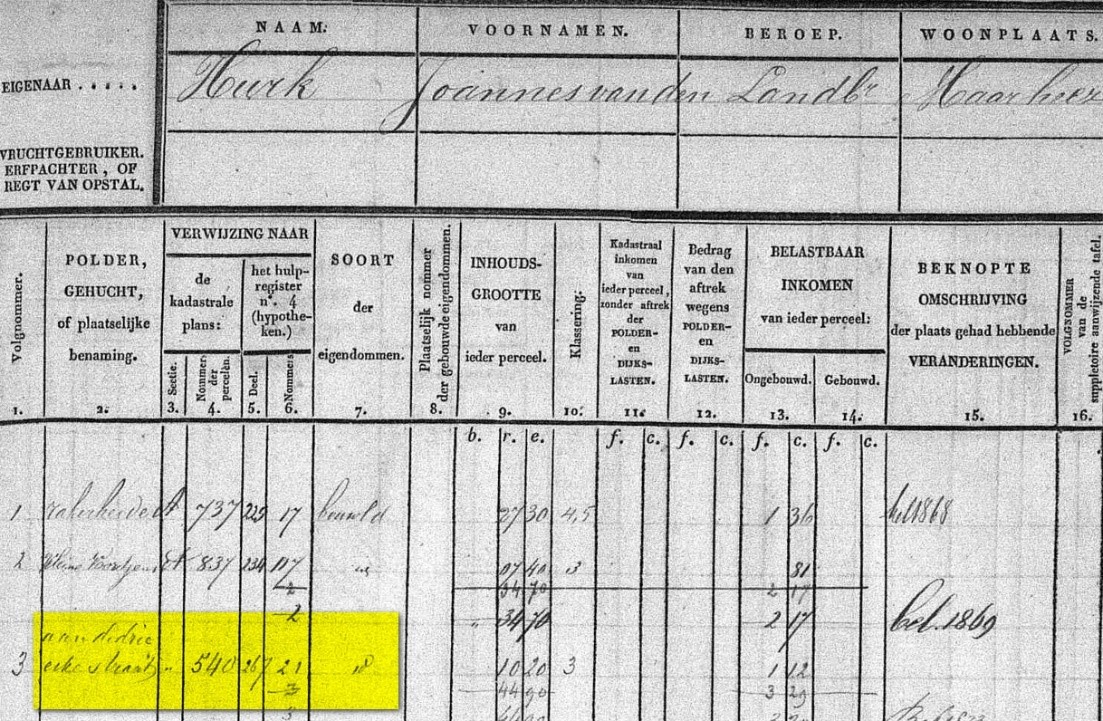 NAAM: VOORNAMEN. BEROEP. WOONPLAATS.
EIGENAAR ..... Hurk Joannes van den Landbr Maarheez
VRUCHTGEBRUIKER.
ERFPACHTER, OF
REGT VAN OPSTAL.
Volgnommer.
POLDER,
GEHUCHT,
of plaatselijke
benaming.
VERWIJZING NAAR
de
kadastrale
plans:
Sectie.
Nommers
der
perceelen.
het hulp-
register
n°. 4
(hypothe-
ken.)
Deel.
Nommers.
SOORT
der
eigendommen.
Plaatselijk nommer
der gebouwde eigendommen.
INHOUDS-
GROOTTE
van
ieder perceel.
Klassering.
Kadastraal
inkomen
van
ieder perceel,
zonder aftrek
der
POLDER-
en
DIJKS-
LASTEN.
Bedrag
van den
aftrek
wegens
POLDER-
en
DIJKS-
LASTEN.
BELASTBAAR
INKOMEN
van ieder perceel:
Ongebouwd. Gebouwd.
BEKNOPTE
OMSCHRIJVING
der plaats gehad hebbende
VERANDERINGEN.
VOLGNOMMER
van de
suppletoire aanwijzende tafel.
1. 2. 3. 4. 5. 6. 7. 8. 9. 10. 11. 12. 13. 14. 15. 16.
b. r. e. f. c. f. c. f. c. f. c.
1 A 737 229 17 bouwld 27 30 4,5 1 36 1868
2 837 234 117 07 40 3 81
2 34 70 2 17
2 34 70 2 17 bel. 1869
aan de drie
3 eike straatj 540 267 21 10 20 3 1 12
3 44 90 3 29
3